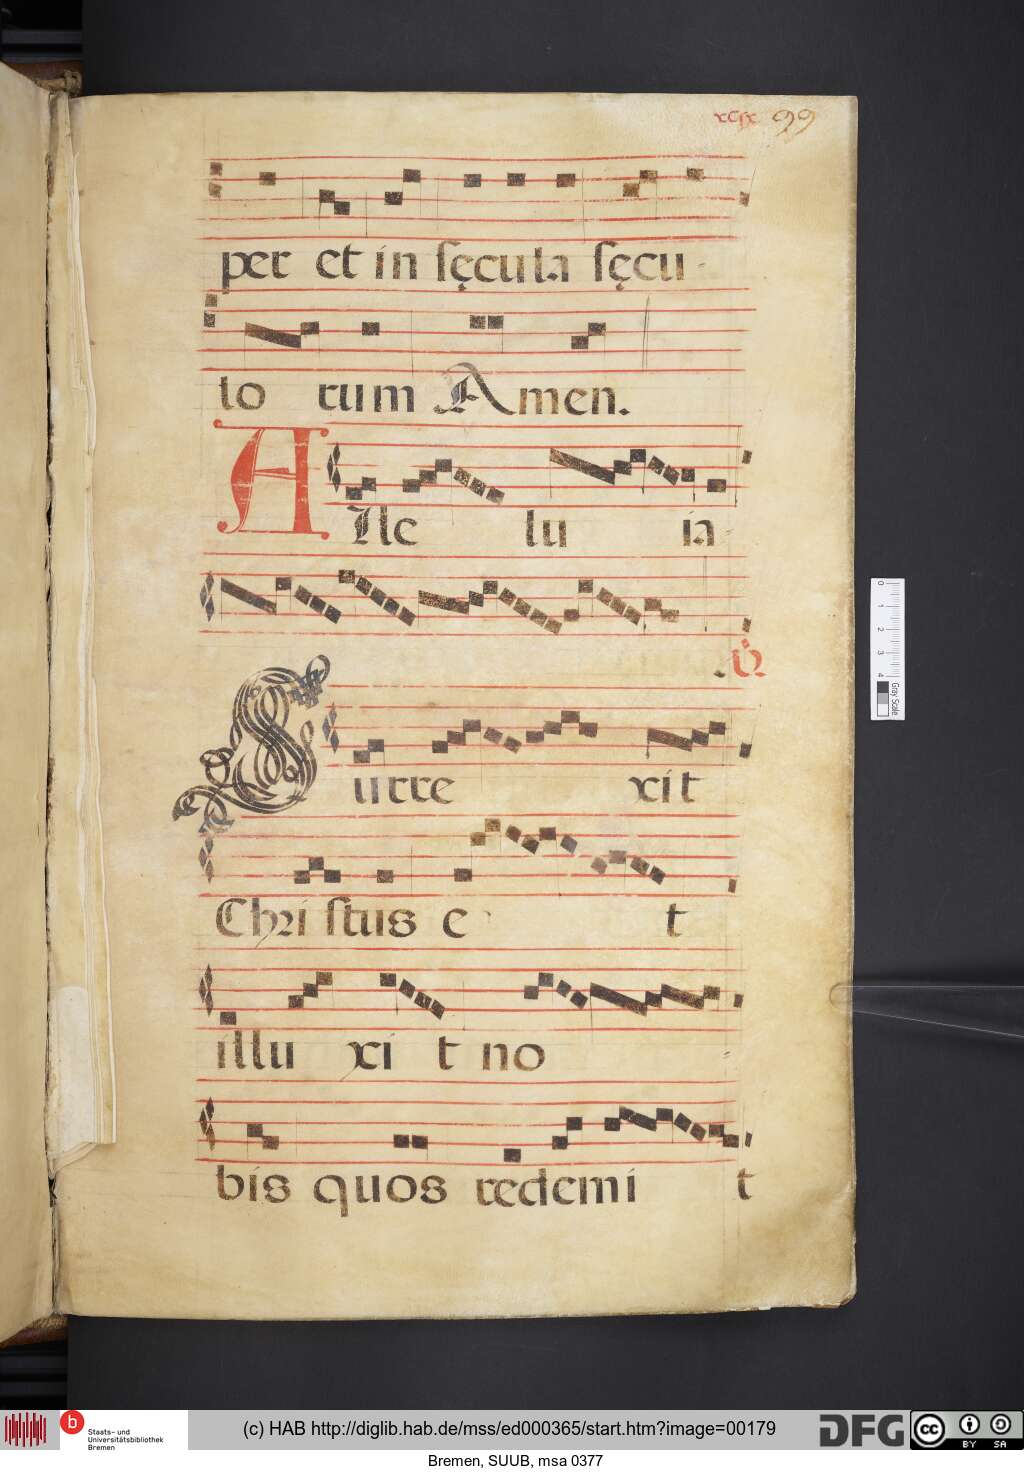 xcix 99
per et in sęcula sęcu-
lo rum Amen.
Alle lu ia-
. V.
Surre xit
Chri stus e t
illu xi t no -
bis quos redemi t
0 1 2 3 4
Gray Scale
b Staats- und Universitätsbibliothek Bremen
(c) HAB http://diglib.hab.de/mss/ed000365/start.htm?image=00179
DFG
cc BY SA
Bremen, SUUB, msa 0377